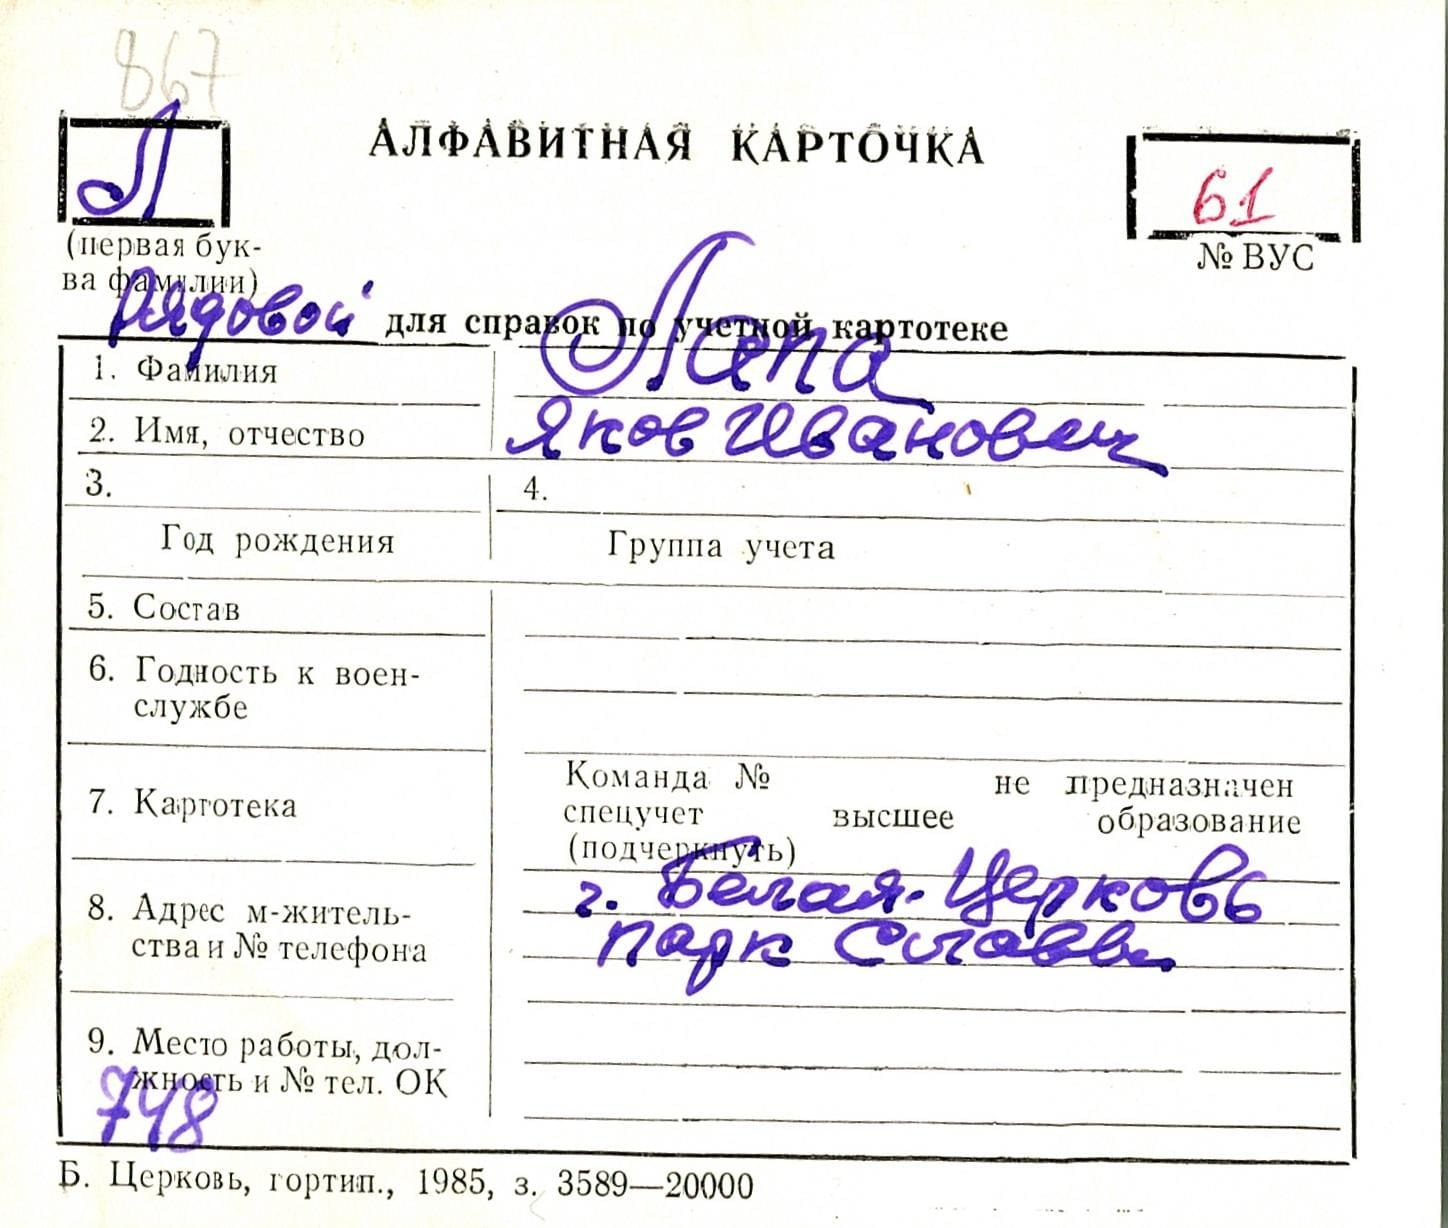 867
Л
АЛФАВИТНАЯ КАРТОЧКА
61
(первая бук-
ва фамилии)
№ ВУС
Рядовой для справок по учетной картотеке
1. Фамилия Лапа
2. Имя, отчество Яков Иванович
3. 4.
Год рождения Группа учета
5. Состав
6. Годность к воен-
службе
7. Картотека
Команда № не предназначен
спецучет высшее образование
(подчеркнуть)
8. Адрес м-житель-
ства и № телефона
г. Белая-Церковь
парк Славы
9. Место работы, дол-
жность и № тел. ОК
748
Б. Церковь, гортип., 1985, з. 3589—20000